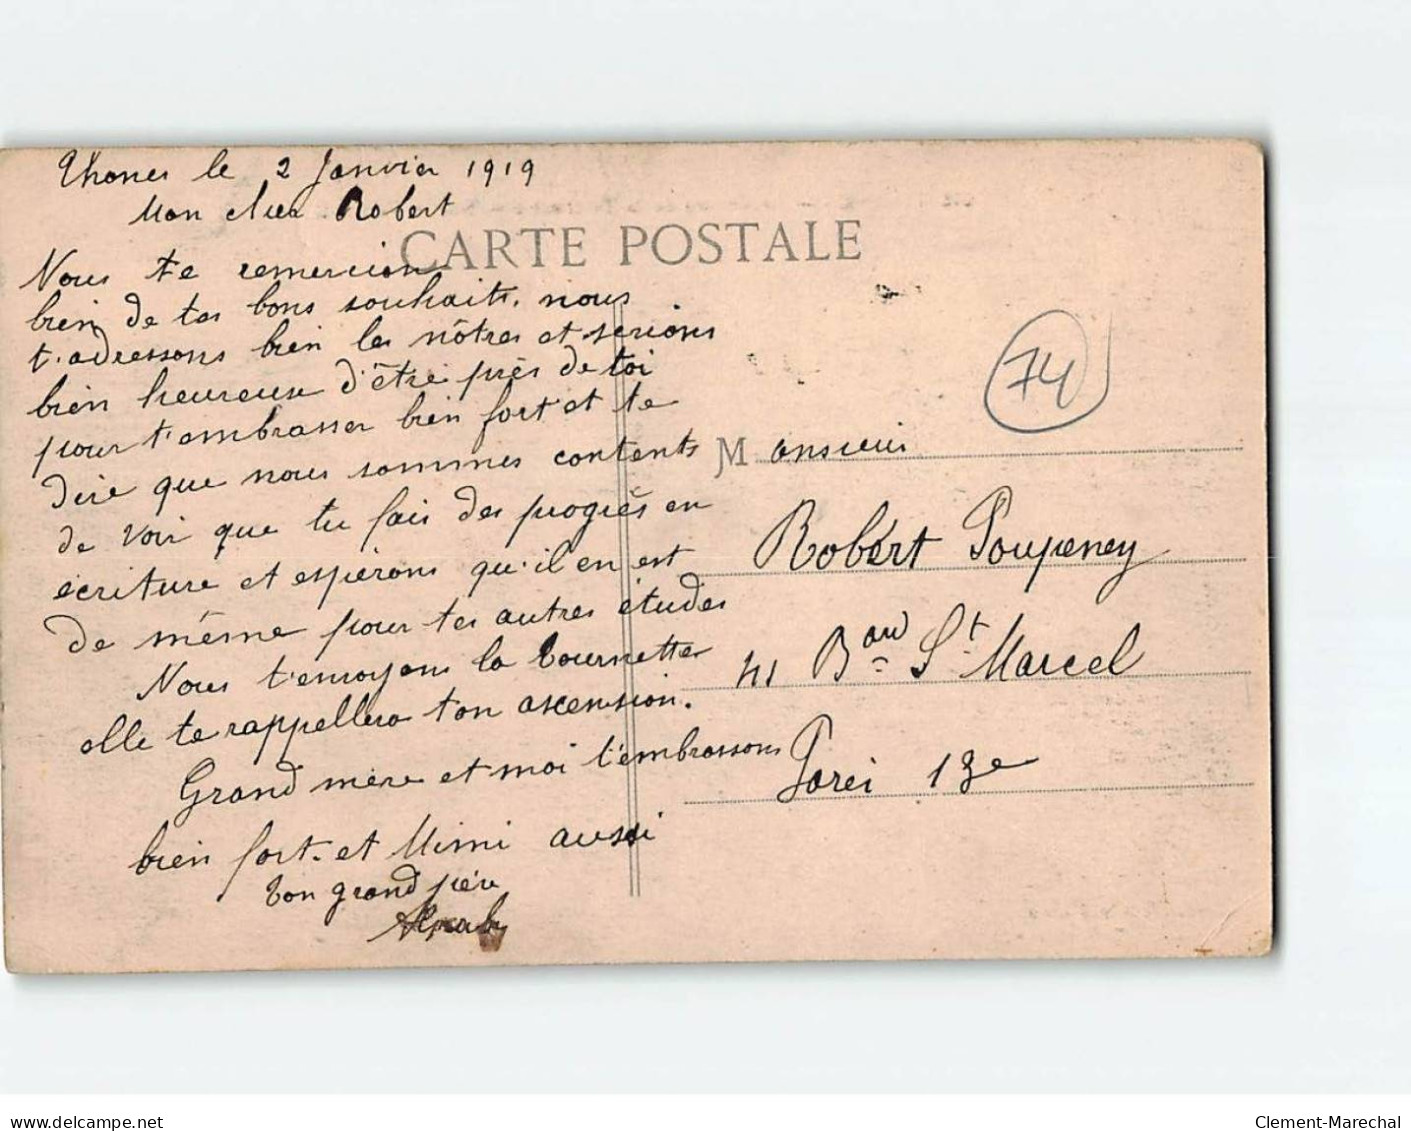 Thones le 2 Janvier 1919
Mon cher Robert
CARTE POSTALE
Nous te remercion
bien de tes bons souhaits. nous
t'adressons bien les nôtres et serions
bien heureuse d'être près de toi
pour t'embrasser bien fort et te
dire que nous sommes contents
de voir que tu fais des progrès en
écriture et espérons qu'il en est
de même pour tes autres études
Nous t'envoyons la Tournette
elle te rappellera ton ascension.
Grand mère et moi t'embrassons
bien fort. et Mimi aussi
ton grand père
74
Monsieur
Robert Poupeney
41 Bard St Marcel
Paris 13e
www.delcampe.net
Clement-Marechal